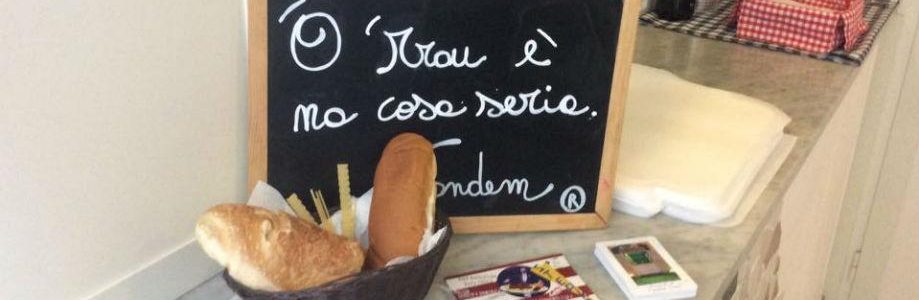 O 'Rrau è
na cosa seria.
Tandem ®